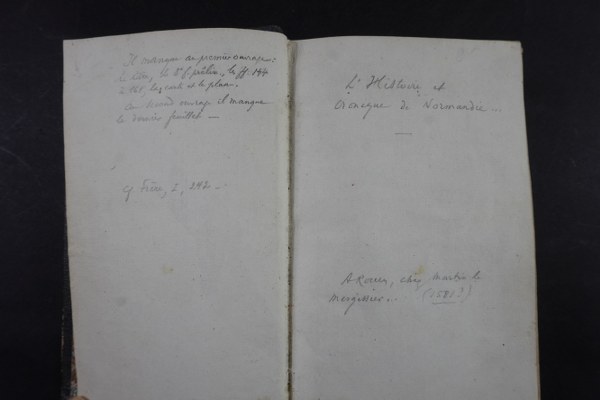 Il manque au premier ouvrage:
le titre, le 8e f. prélim., le ff.
à 168, la carte et le plan.
Au second ouvrage il manque
le dernier feuillet —
cf Frère, I, 242 —
L'Histoire et
Cronique de Normandie...
A Rouen, chez Martin le
Mesgissier... (1581?)